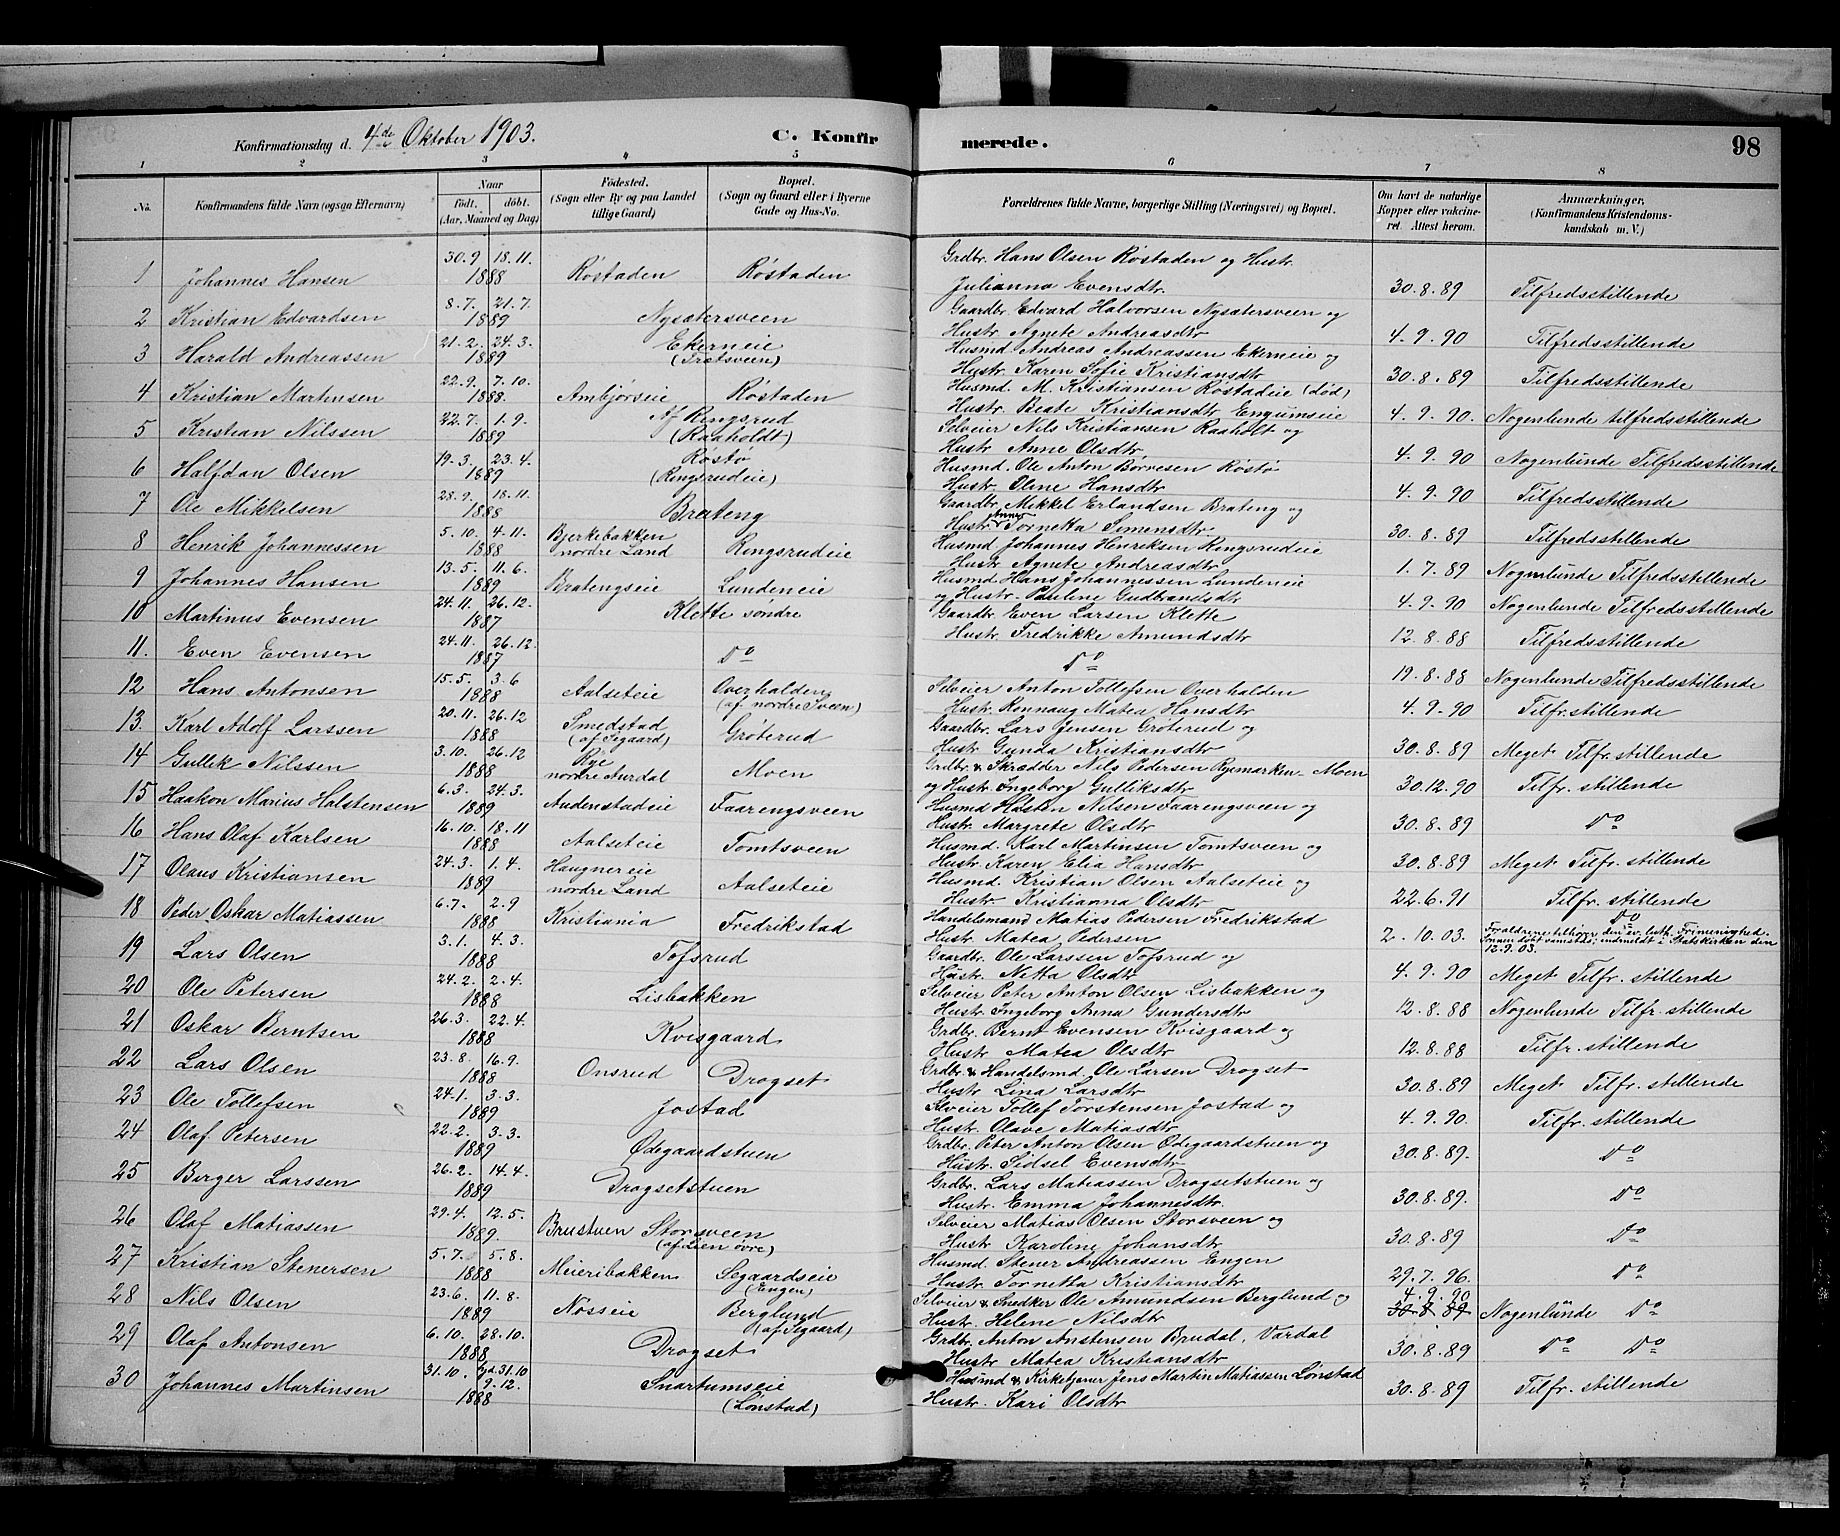 Konfirmationsdag d. 4de Oktober 1903.
C. Konfirmerede.
98
1 2 3 4 5 6 7 8
No.
Konfirmandens fulde Navn (ogsaa Efternavn)
Naar
født. døbt.
(Aar, Maaned og Dag)
Fødested.
(Sogn eller By og paa Landet tillige Gaard)
Bopæl.
(Sogn og Gaard eller i Byerne Gade og Hus-No.
Forældrenes fulde Navne, borgerlige Stilling (Næringsvei) og Bopæl.
Om havt de naturlige Kopper eller vaccineret. Attest herom.
Anmærkninger,
(Konfirmandens Kristendomskundskab m. V.)
1 Johannes Hansen 30.9 1888 18.11. Røstaden Røstaden Grdbr. Hans Olsen Røstaden og Hustr.
Julianna Evensdtr. 30.8.89 Tilfredsstillende
2 Kristian Edvardsen 8.7. 1889 21.7. Nysætersveen Gaardbr. Edvard Halvorsen Nysætersveen og
Hustr. Agnete Andreasdtr 4.9.90 Tilfredsstillende
3 Harald Andreassen 21.2. 1889 24.3. Ekerneie (Tratsveen) Husmd Andreas Andreassen Ekerneie og
Hustr. Karen Sofie Kristiansdtr 30.8.89 Tilfredsstillende
4 Kristian Martinsen 22.9. 1888. 7.10. Ambjørseie Røstaden Husmd. M. Kristiansen Røstadeie (død)
Hustr. Beate Kristiansdtr Engumseie 4.9.90. Nogenlunde tilfredsstillende
5 Kristian Nilssen 22.7. 1889 1.9. Af Ringsrud (Raaholdt) Selveier Nils Kristiansen Raaholt og
Hustr Anne Olsdtr 4.9.90 Nogenlunde Tilfredsstillende
6 Halfdan Olsen 19.3. 1889 23.4. Røstø (Ringsrudeie) Husmd. Ole Anton Børvesen Røstø
Hustr. Oline Hansdtr 4.9.90 Tilfredsstillende
7 Ole Mikkelsen 28.9. 1888 18.11. Brateng Gaardbr. Mikkel Erlandsen Brateng og
Hustr. Anne Tornetta Simensdtr 30.8.89 Tilfredsstillende
8 Henrik Johannessen 5.10. 1888 4.11. Bjerkebakken nordre Land Ringsrudeie Husmd Johannes Henriksen Ringsrudeie
Hustr Agnete Andreasdtr 1.7.89 Nogenlunde Tilfredsstillende
9 Johannes Hansen 13.5. 1889 11.6. Bratengseie Lundeneie Husmd Hans Johannessen Lundeneie
og Hustr. Pauline Gudbrandsdtr 4.9.90 Nogenlunde Tilfredsstillende
10 Martinus Evensen 24.11. 1887 26.12. Klette søndre Gaardbr. Even Larsen Klette
Hustr. Fredrikke Amundsdtr 12.8.88 Tilfredsstillende
11. Even Evensen 24.11. 1887 26.12. Do Do 19.8.88 Nogenlunde Tilfredsstillende
12 Hans Antonsen 15.5. 1888 3.6 Aalseteie Overhalden (af nordre Sveen) Selveier Anton Tollefsen Overhalden
Hustr. Ronnaug Matea Hansdtr 4.9.90 Tilfr. stillende
13. Karl Adolf Larssen 20.11. 1888 26.12 Smedstad (af Segaard) Grøterud Gaardbr. Lars Jensen Grøterud og
Hustr. Gunda Kristiansdtr 30.8.89 Meget Tilfr. stillende
14 Gullek Nilssen 3.10. 1888 26.12 Rye nordre Aurdal Moen Grdbr. & Skrædder Nils Pedersen Ryemarken - Moen
og Hustr. Ingeborg Gulliksdtr 30.12.90 Tilfr. stillende
15 Haakon Marius Halstensen 6.3. 1889 24.3. Audenstadeie Faarengsveen Husmd Halsten Nilsen Faarengsveen og
Hustr. Margrete Olsdtr 30.8.89 Do
16 Hans Olaf Karlsen 16.10. 1888 18.11 Aalseteie Tomtsveen Husmd. Karl Martinsen Tomtsveen og
Hustr. Karen Elia Hansdtr 30.8.89 Meget Tilfr. stillende
17 Olaus Kristiansen 24.3. 1889 1.4. Haugnereie nordre Land Aalseteie Husmd. Kristian Olsen Aalseteie og
Hustr Kristianna Olsdtr 22.6.91 Tilfr. stillende
18 Peder Oskar Matiassen 6.7. 1888 2.9 Kristiania Fredrikstad Handelsmand Matias Pedersen Fredrikstad
Hustr. Matea Pedersen 2.10.03. Do Forældrene tilhører den ev. luth. Frimenighed. indmeldt i Statskirken den 12.9.03.
19 Lars Olsen 3.1. 1888 4.3. Tofsrud Gaardbr. Ole Larssen Tofsrud og
Hustr. Netta Olsdtr 4.9.90 Meget Tilfr. stillende
20 Ole Petersen 24.2. 1888 2.4. Lisbakken Selveier Peter Anton Olsen Lisbakken og
Hustr. Ingeborg Anna Gundersdtr 12.8.88 Nogenlunde Tilfr. stillende
21 Oskar Berntsen 26.3. 1888 22.4. Kvisgaard Grdbr. Bernt Evensen Kvisgaard og
Hustr. Matea Olsdtr 12.8.88 Tilfr. stillende
22 Lars Olsen 23.8. 1888 16.9. Onsrud Drogset Grdbr. & Handelsmd. Ole Larsen Drogset
Hustr. Lina Larsdtr 30.8.89 Meget Tilfr. stillende
23 Ole Tollefsen 24.1. 1889 3.3. Jostad Selveier Tollef Torstensen Jostad og
Hustr. Olave Matiasdtr 4.9.90. Tilfr. stillende
24 Olaf Petersen 22.2. 1889 3.3. Ødegaardstuen Grdbr. Peter Anton Olsen Ødegaardstuen og
Hustr. Sidsel Evensdtr 30.8.89. Do
25 Birger Larssen 26.2. 1889 14.4. Drogsetstuen Grdbr. Lars Matiassen Drogsetstuen og
Hustr. Emma Johannesdtr. 30.8.89. Do
26 Olaf Matiassen 29.4. 1889. 12.5. Brustuen Storsveen (af Lien øvre) Selveier Matias Olsen Storsveen og
Hustr Karoline Johansdtr 30.8.89 Do
27 Kristian Stenersen 5.7. 1888 5.8. Meieribakken Segaardseie (Engen) Husmd. Stener Andreassen Engen
Hustr. Tornetta Kristiansdtr 29.7.96. Do
28 Nils Olsen 23.6. 1889 11.8. Nøsseie Berglund (af Segaard) Selveier & Snedker Ole Amundsen Berglund og
Hustr. Helene Nilsdtr 4.9.90 30.8.89 Nogenlunde Do
29 Olaf Antonsen 6.10. 1888 28.10. Drogset Grdbr. Anton Anstensen Brudal, Vardal
Hustr Matea Kristiansdtr 30.8.89 Do Do
30 Johannes Martinsen 31.10. 1888 hjd. 31.10 9.12. Snartumseie (Lønstad) Husmd & Kirketjener Jens Martin Matiassen Lønstad
Hustr. Kari Olsdtr 30.8.89 Tilfr. stillende